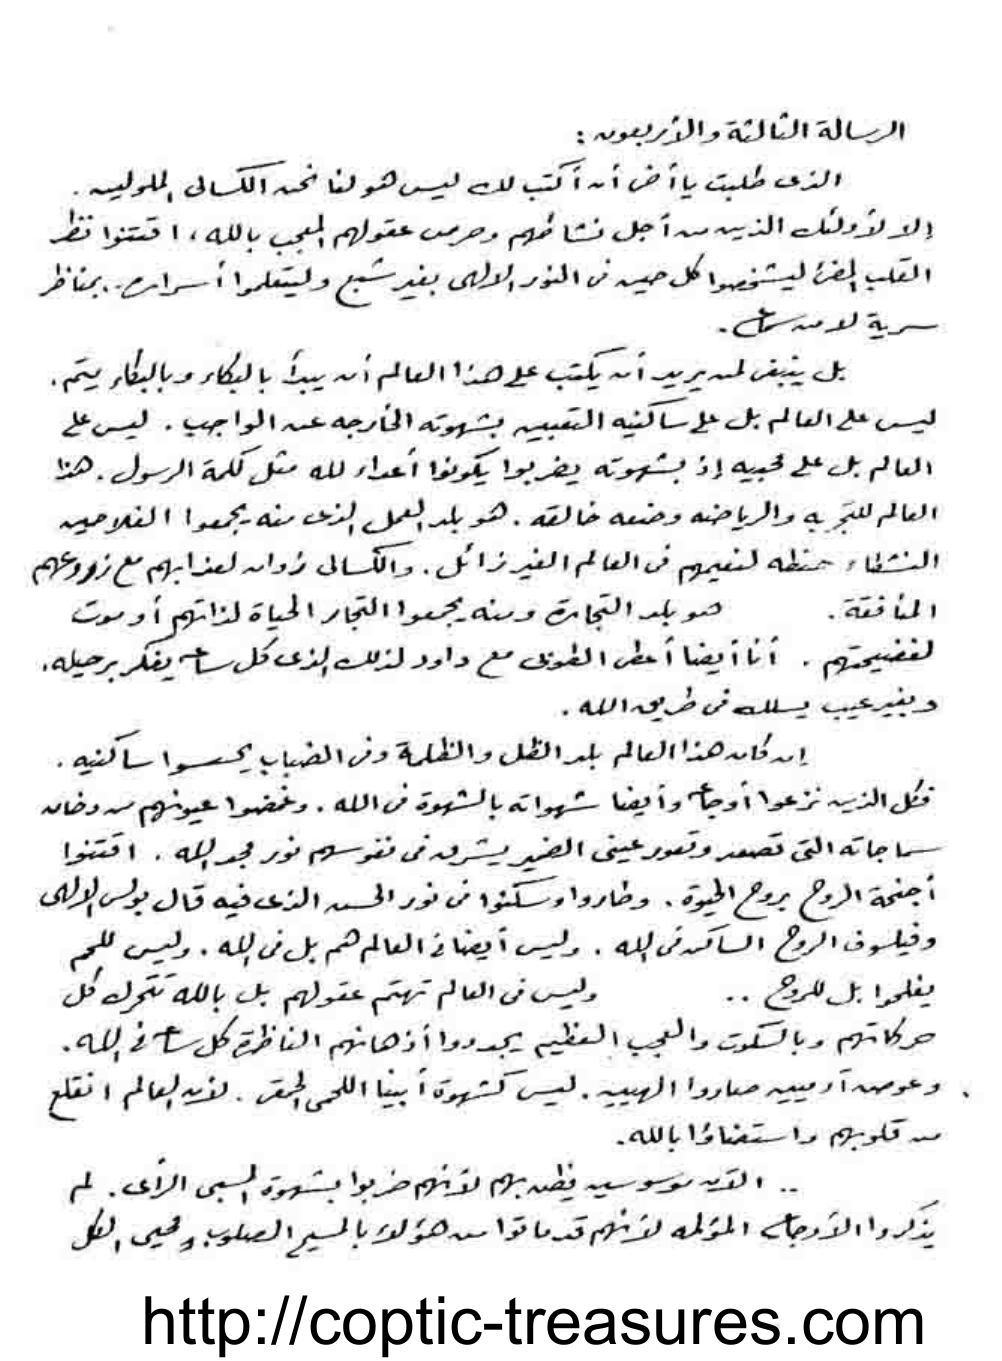 الرسالة الثالثة والأربعون :
الذى طلبت يا أخى أن أكتب لك ليس هو لنا نحن الكسالى الملولين .
إلا لأولئك الذين من أجل نشاطهم وحرص عقولهم المعجب بالله ، اقتنوا نظر
القلب المضئ ليشخصوا كل حين فى النور الالهى بغير شبع وليتعلموا أسراره بمناظر
سرية لا من سماع .
بل ينبغى لمن يريد أن يكتب على هذا العالم أن يبدأ بالبكاء وبالبكاء يتم .
ليس على العالم بل على ساكنيه التعبين بشهوته الخارجه عن الواجب . ليس على
العالم بل على محبيه إذ بشهوته يضربوا يكونوا أعداء لله مثل كلمة الرسول . هذا
العالم للتجربه والرياضه وضعه خالقه . هو بلد العمل الذى منه يجمعوا الفلاحين
النشطاء حنطه لنعيمهم فى العالم الغير زائل . والكسالى زوان لعذابهم مع زروعهم
المنافقة . هو بلد التجارة ومنه يجمعوا التجار الحياة لذاتهم أو موت
لفضيحتهم . أنا أيضا أعطى الطوبى مع داود لذلك الذى كل ساعة يفكر برحيله .
وبغير عيب يسلك فى طريق الله .
إن كان هذا العالم بلد الظل والظلمة وفى الضباب يحبسوا ساكنيه .
فكل الذين نزعوا أوجاعه وأيضا شهواته بالشهوة فى الله . وغمضوا عيونهم من دخان
سماجاته التى تصعد وتعور عينى الضمير يشرق فى نفوسهم نور مجد الله . اقتنوا
أجنحة الروح بروح الحيوة . وطاروا وسكنوا فى نور الحسن الذى فيه قال بولس الالهى
وفيلسوف الروح الساكن فى الله . وليس أيضا فى العالم هم بل فى الله . وليس للحم
يفلحوا بل للروح .. وليس فى العالم تهتم عقولهم بل بالله تتحرك كل
حركاتهم وبالسكوت والعجب العظيم يجددوا أذهانهم الناظرة كل ساعة فى الله .
وعوض آدميين صاروا الهيين . ليس كشهوة أبينا اللحمى الحمق . لأن العالم انقلع
من قلوبهم واستضاؤا بالله .
.. الآن موسوسين يظن بهم لأنهم ضربوا بشهوة المسبى الرأى . لم
يذكروا الأوجاع المؤلمه لأنهم قد ماتوا من هؤلاء بالمسيح المصلوب ومحيى الكل
http://coptic-treasures.com